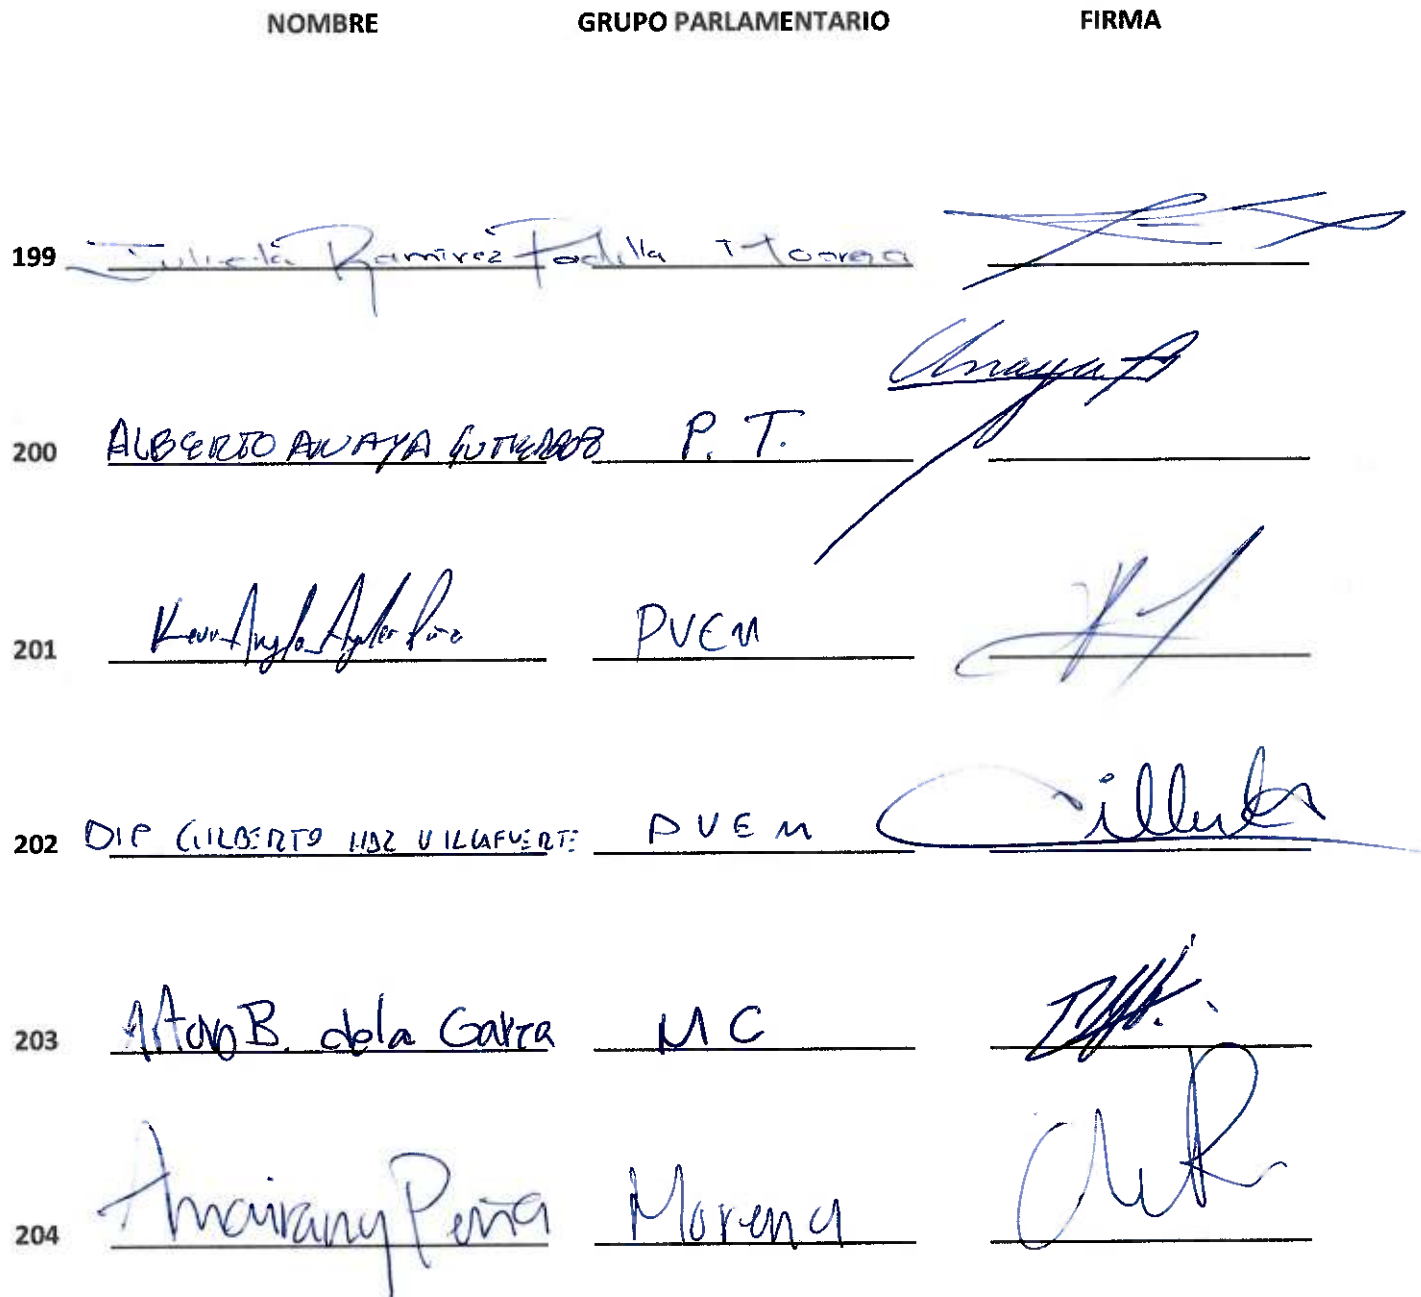 NOMBRE GRUPO PARLAMENTARIO FIRMA
199 Julieta Ramírez Padilla Morena
200 ALBERTO ANAYA GUTIERREZ P. T. Anaya
201 PVEM
202 DIP GILBERTO HDZ VILLAFUERTE PVEM
203 Arturo B. de la Garza MC
204 Amairany Peña Morena